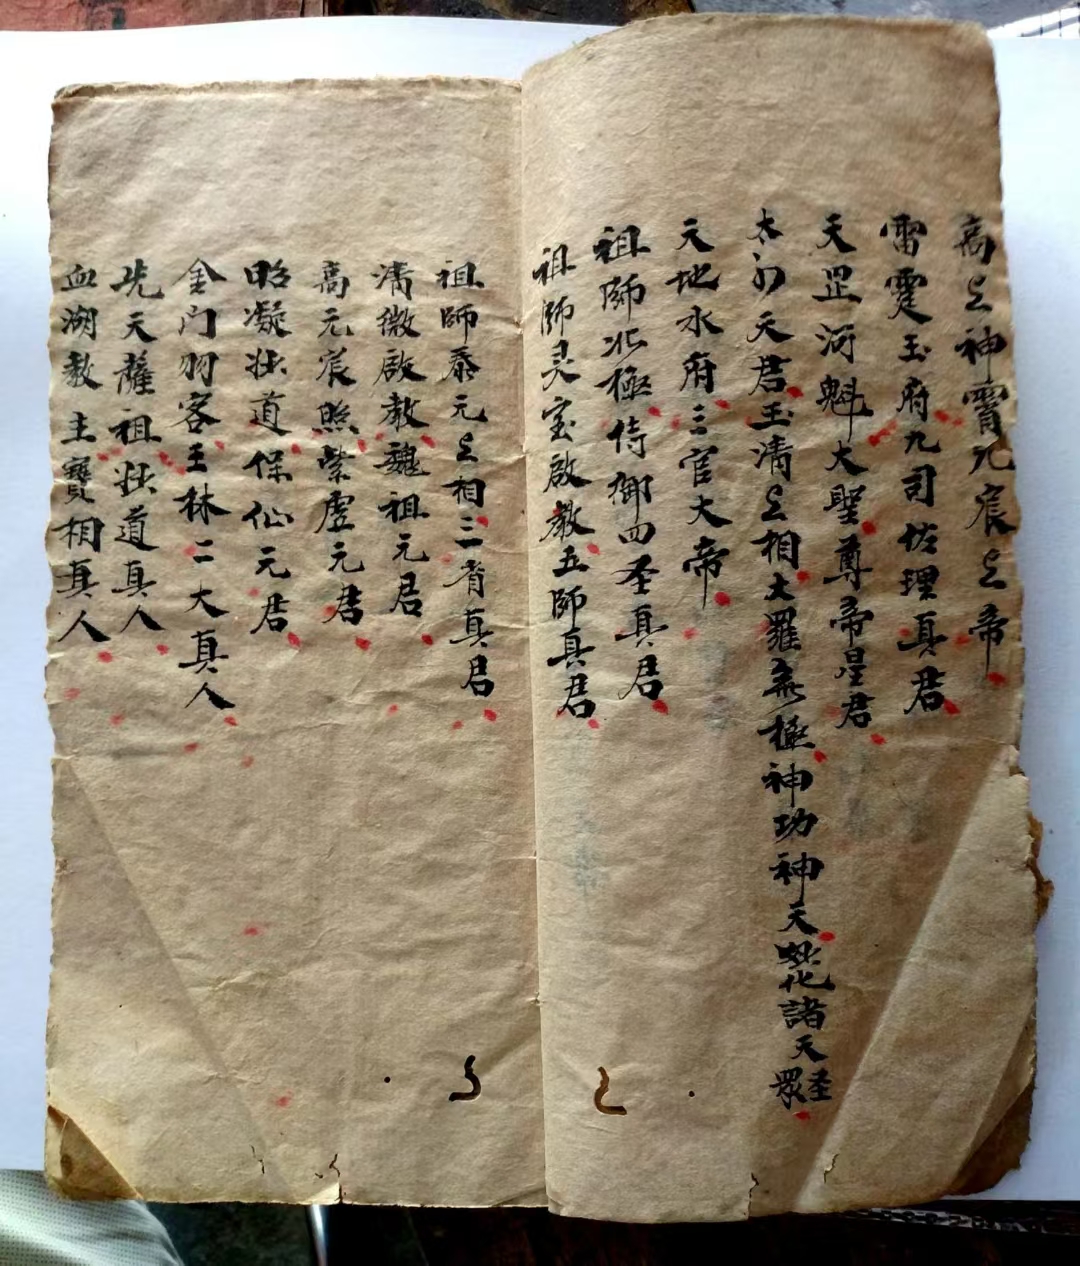 高上神霄九宸上帝
雷霆玉府九司佐理真君
天罡河魁大聖尊帝星君
太乃天君玉清上相大羅無極神功神天 化諸天圣衆
元地水府三官大帝
祖師北極侍御四圣真君
祖師灵宝啟教五師真君
祖師泰元上相二省真君
清微啟教魏祖元君
高元宸照紫虛元君
昭凝妝道保仙元君
金门羽客王林二大真人
先天薩祖妝道真人
血湖教主寶相真人